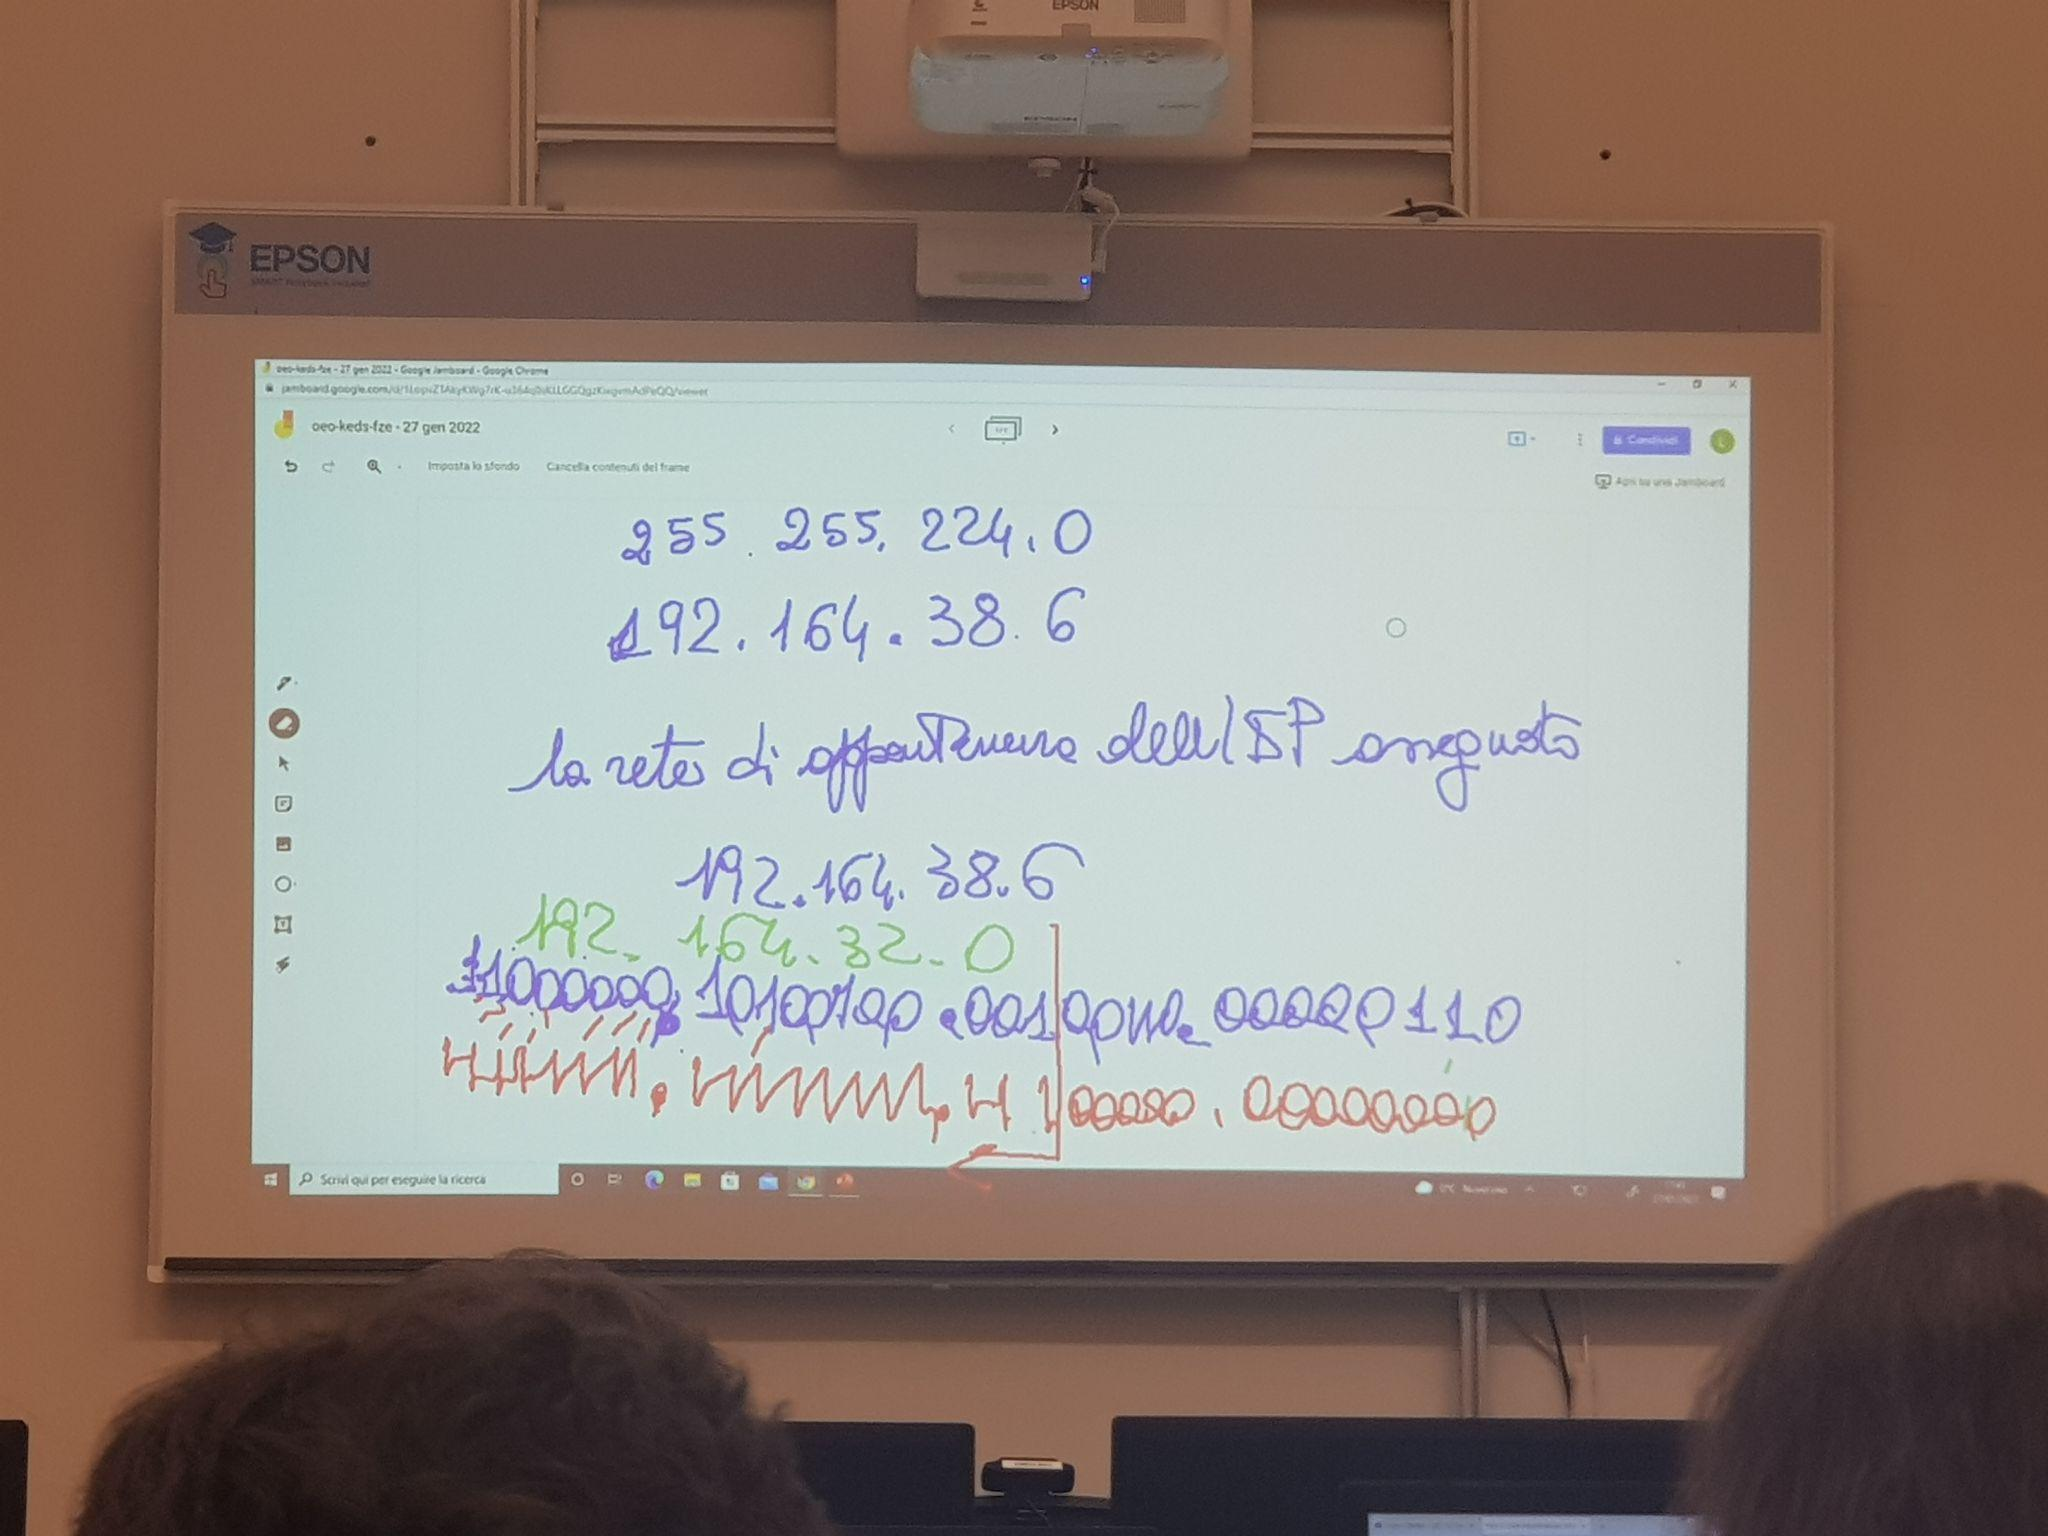 EPSON
EPSON
oeo-keds-fze - 27 gen 2022 - Google Jamboard - Google Chrome
oeo-keds-fze - 27 gen 2022
Condividi
L
Imposta lo sfondo
Cancella contenuti del frame
Apri su una Jamboard
255.255.224.0
192.164.38.6
la rete di appartenenza dell'IP assegnato
192.164.38.6
192.164.32.0
11000000.10100100.00100110.00000110
11111111.11111111.11100000.00000000
Scrivi qui per eseguire la ricerca
0°C Nuvoloso